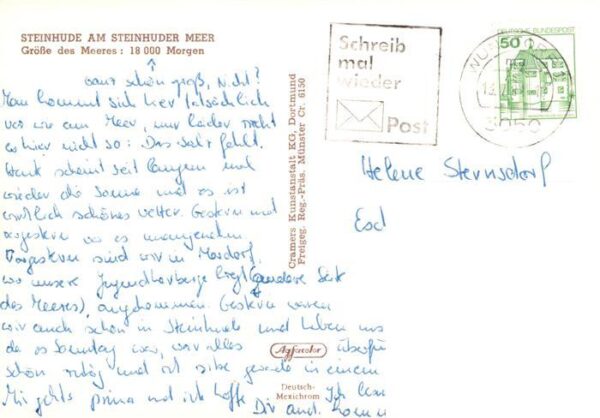 STEINHUDE AM STEINHUDER MEER
Größe des Meeres: 18 000 Morgen
ganz schön groß, nicht?
Man kommt sich hier tatsächlich
vor wie am Meer, nur leider riecht
es hier nicht so: Das Salz fehlt.
Heute scheint seit langem mal
wieder die Sonne und es ist
wirklich schönes Wetter. Gestern und
vorgestern war es
Vorgestern sind wir in Mardorf,
wo unsere Jugendherberge liegt (andere Seite
des Meeres), angekommen. Gestern waren
wir auch schon in Steinhude und haben uns
da es Sonntag war, war alles überfü
schön und ich sitze gerade in einem
Mir gehts prima und ich hoffe Dir auch.
Cramers Kunstanstalt KG, Dortmund
Freigeg. Reg.-Präs. Münster Cr. 6150
Agfacolor
Deutsch-
Mexichrom
Schreib
mal
wieder
Post
DEUTSCHE BUNDESPOST
50
WUNSTORF
3050
Helene Sternsdorf